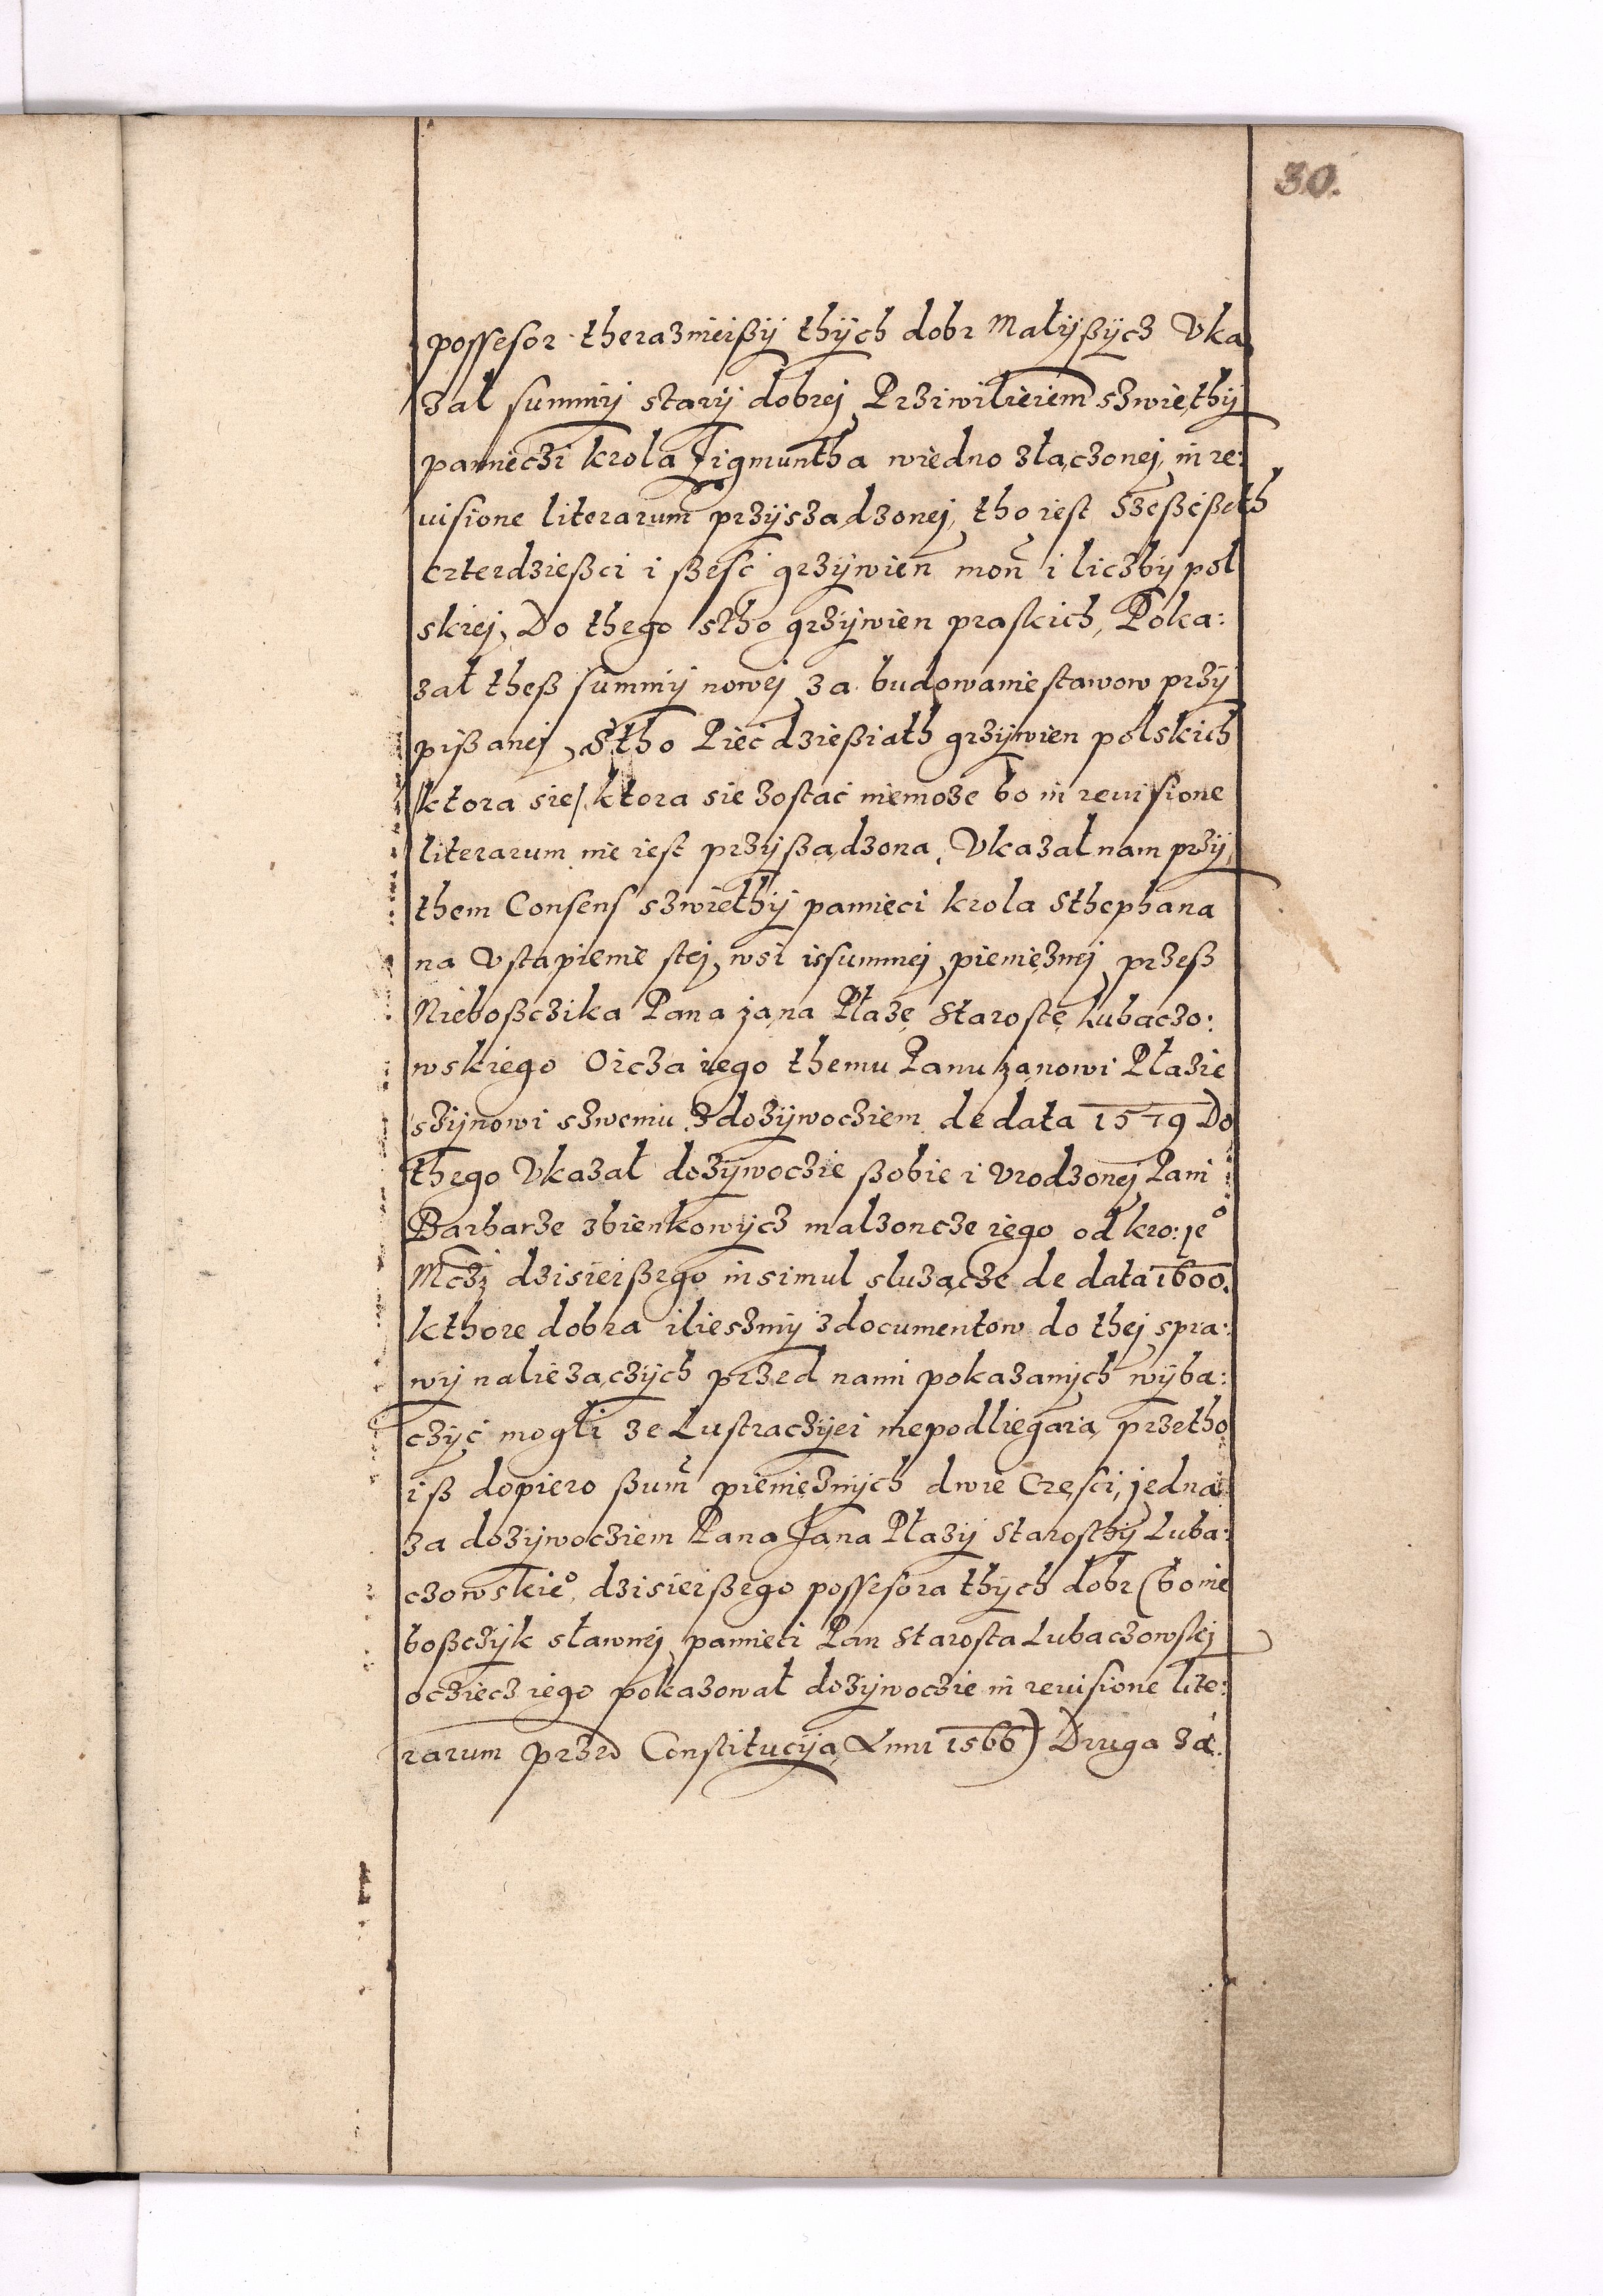 30.
possesor theraznieißÿ thÿch dobr Małÿßÿch Uka
zał summÿ starÿ dobrej Prziwilieiem szwięthÿ
pamieczi krola Zigmuntha wiedno złączonej, in re:
uisione literarum przÿsządzonej, tho iest Szescßeth
czterdzießci i ßesc grzÿwien mon i liczbÿ pol
skiej, Do thego stho grzÿwien praskich, Poka:
zał theß summÿ nowej za budowanie stawow przÿ
pißanej, Stho Piecdzießiath grzÿwien polskich
/ktora sie/ ktora sie zostac niemoze bo in reuisione
literarum nie iest przÿßądzona, Ukazał nam przÿ
them Consens szwiethÿ pamieci krola Sthephana
na Ustapienie stej, wsi issumnej, pieniężnej, przeß
Nieboßczika Pana jana Płazę Starostę Lubaczo:
wskiego Oicza iego themu Panu janowi Płazie
szÿnowi szwemu z dozÿwocziem de data 1579 Do
thego Ukazał dozÿwoczie ßobie i Urodzonej Pani
Barbarze zbienkowÿch małzoncze iego od kro: jeº
Mczj dzisieißego insimul sluząche de data 1600.
kthore dobra ilieszmÿ z documentow do thej spra:
wÿ naliezączÿch przed nami pokazanÿch wÿba:
czÿć mogłi ze Lustraczÿei niepodliegaią, przetho
iß dopiero ßum pienieznÿch dwie Częsci, jedna
za dozÿwocziem Pana Jana Płazÿ Starosthÿ Luba:
czowskieº, dzisieißego possesora thÿch dobr (bo nie
boßczÿk sławnej, pamieti Pan Starosta Lubaczowskj
oczięcz iego pokazował dozÿwoczie in reuisione lite:
rarum przed Constitucÿją Anni 1566) Druga zá